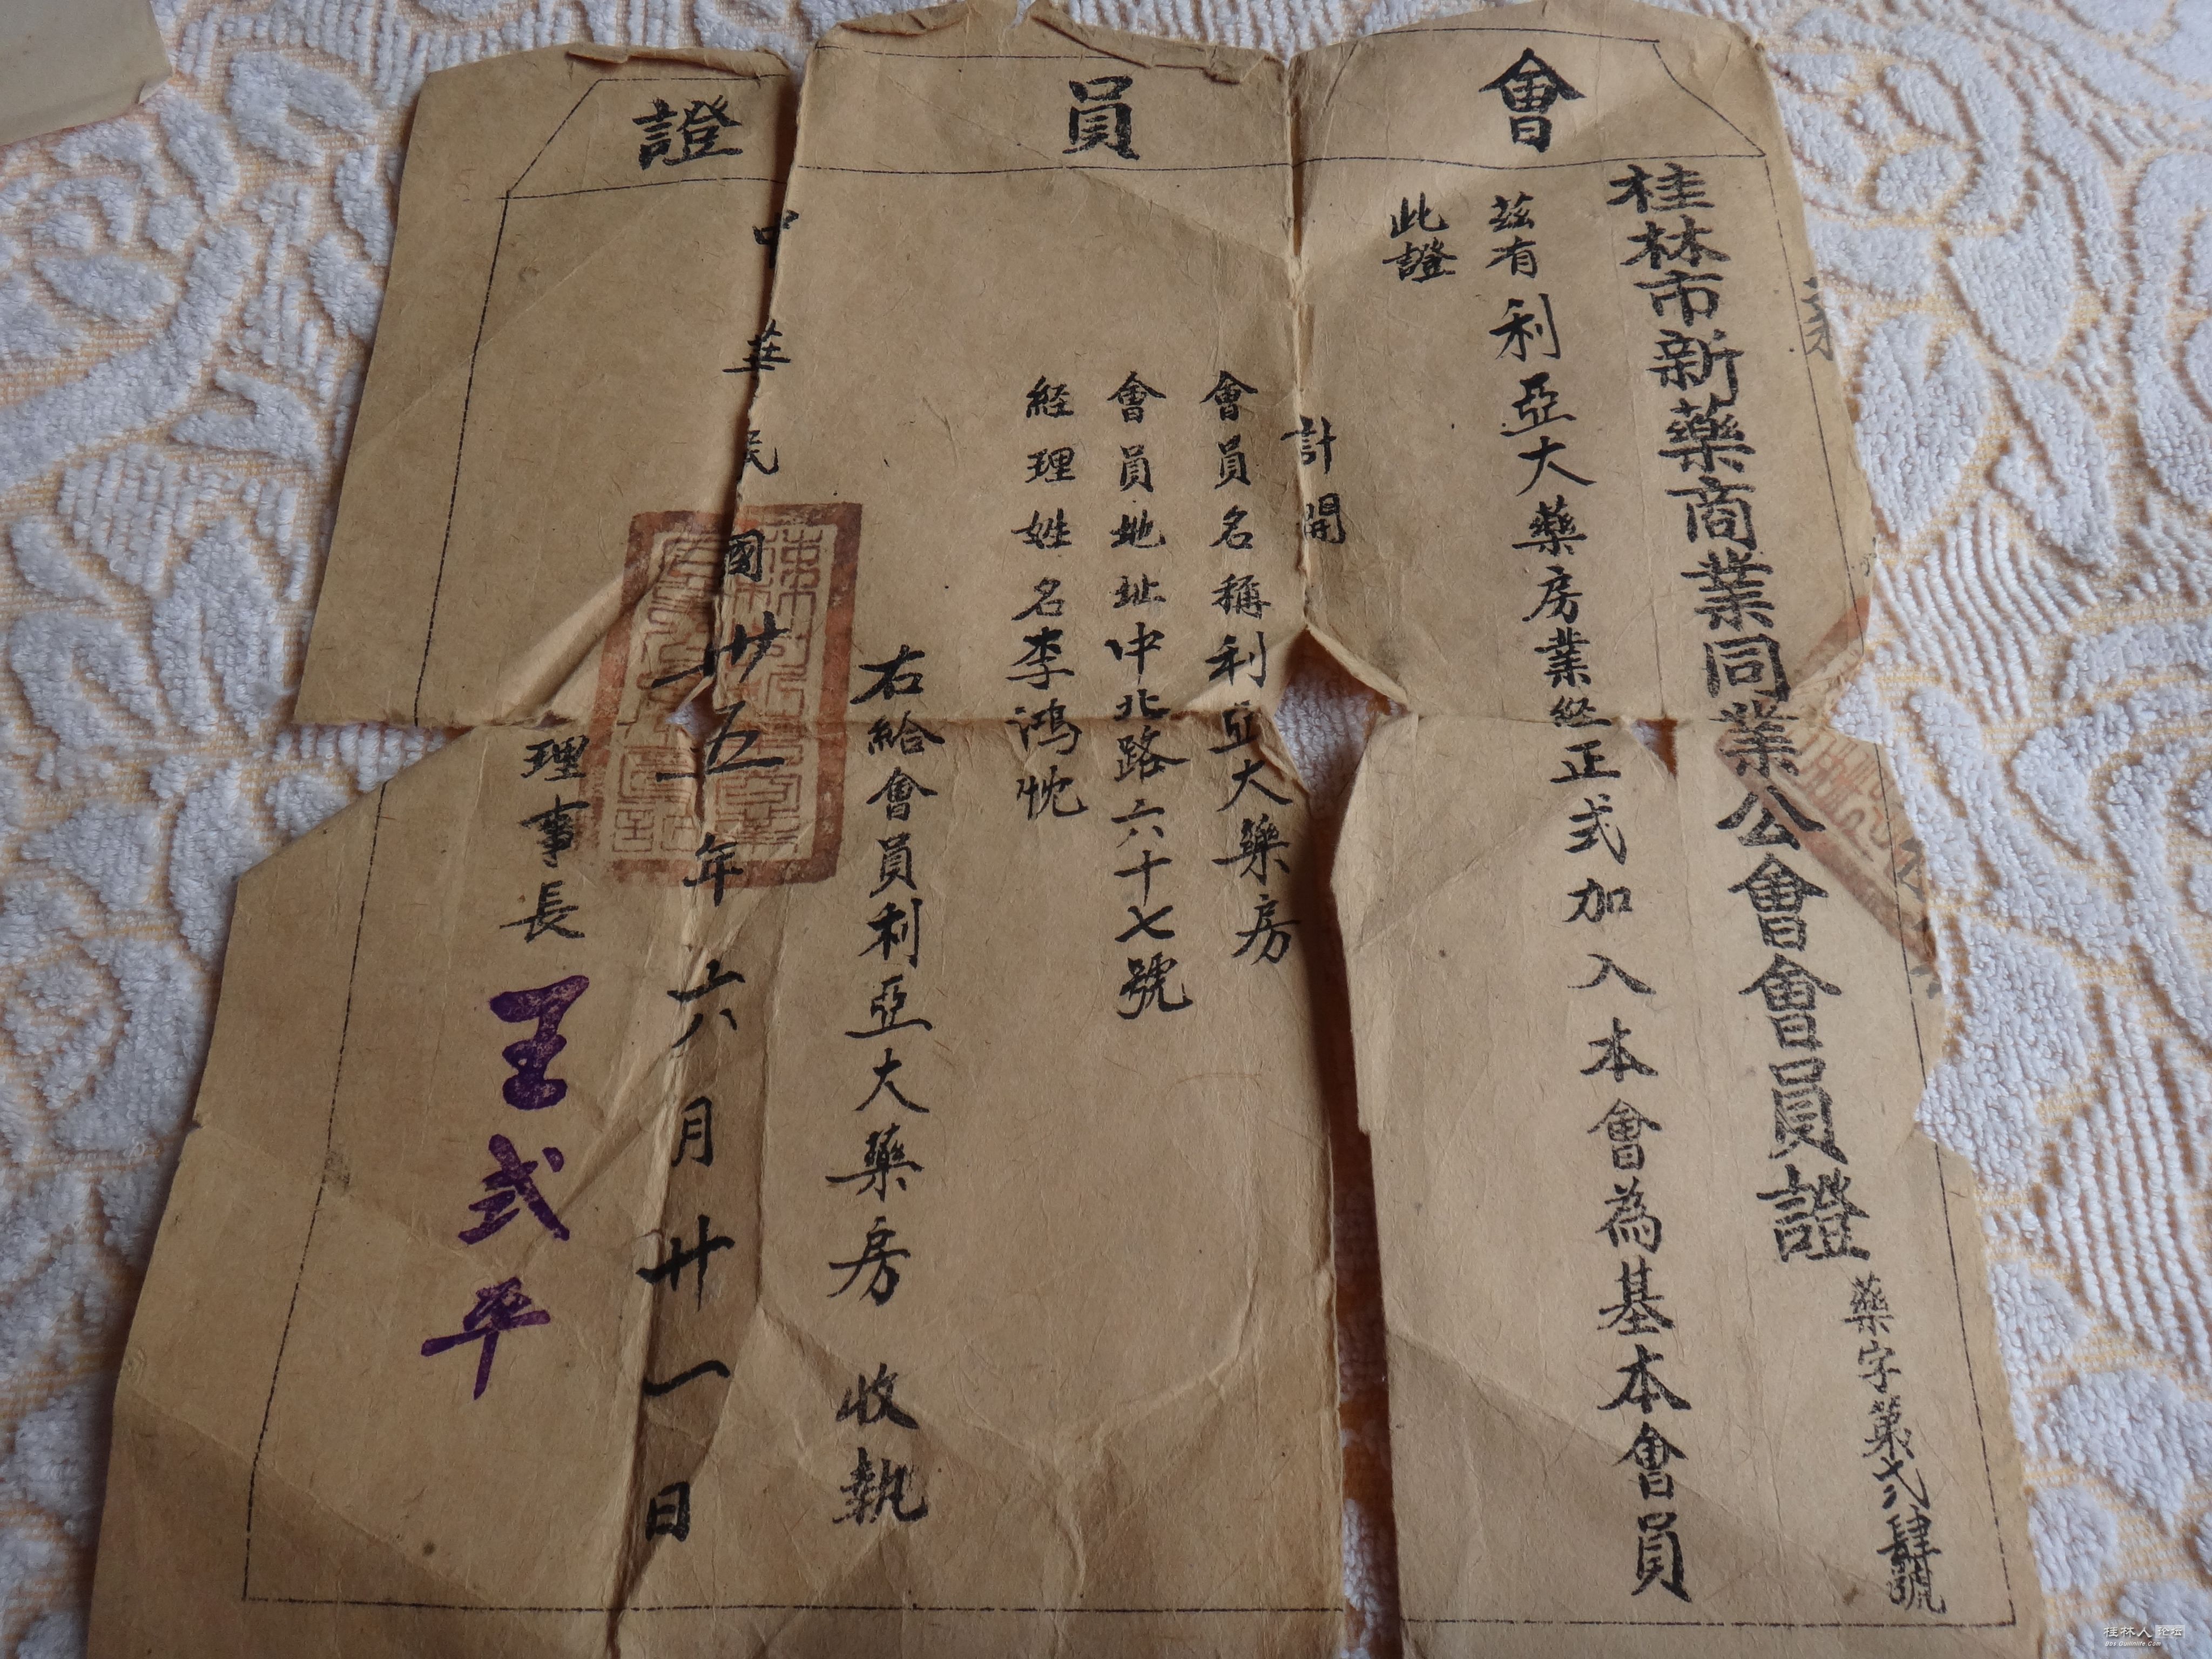 會員證
桂林市新藥商業同業公會會員證
藥字第弍肆號
茲有利亞大藥房業經正式加入本會為基本會員
此證
計開
會員名稱利亞大藥房
會員地址中北路六十七號
經理姓名李鴻忱
右給會員利亞大藥房 收執
中華民國卅五年六月廿一日
理事長 王式平
桂林人论坛